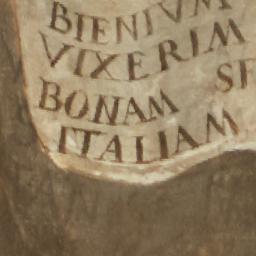 BIENIVM
VIXERIM
BONAM SE
ITALIAM